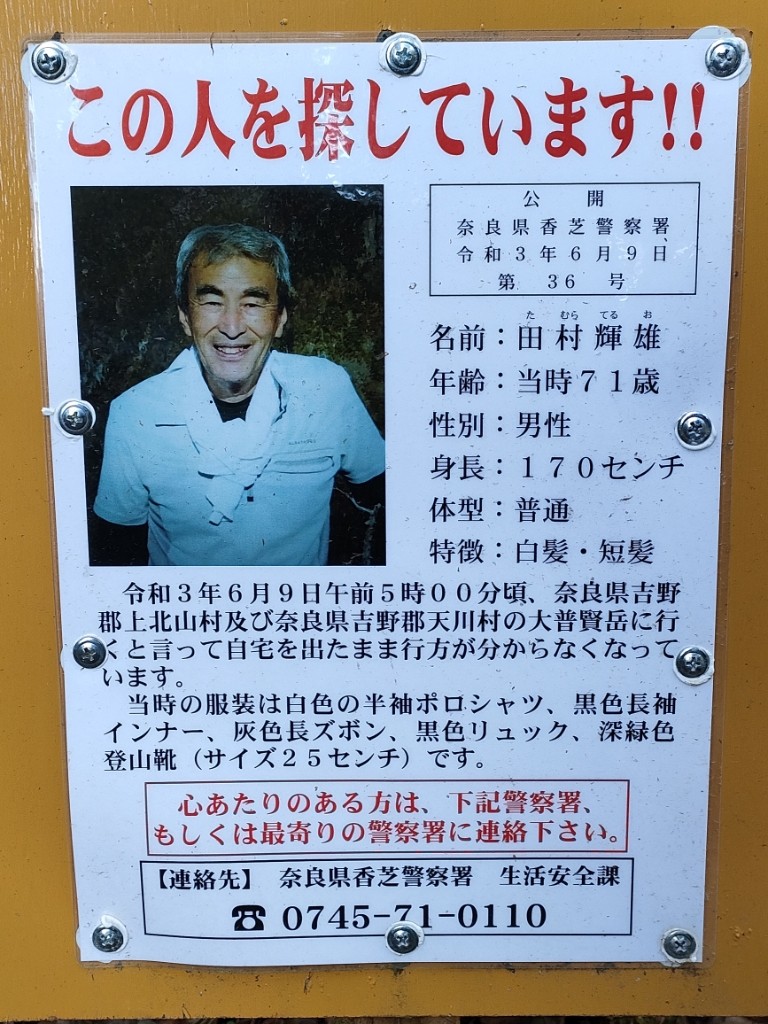 この人を探しています!!
公開
奈良県香芝警察署
令和3年6月9日
第 36 号
た むら てる お
名前：田村輝雄
年齢：当時７１歳
性別：男性
身長：１７０センチ
体型：普通
特徴：白髪・短髪
令和３年６月９日午前５時００分頃、奈良県吉野
郡上北山村及び奈良県吉野郡天川村の大普賢岳に行
くと言って自宅を出たまま行方が分からなくなって
います。
当時の服装は白色の半袖ポロシャツ、黒色長袖
インナー、灰色長ズボン、黒色リュック、深緑色
登山靴（サイズ２５センチ）です。
心あたりのある方は、下記警察署、
もしくは最寄りの警察署に連絡下さい。
【連絡先】 奈良県香芝警察署 生活安全課
☎ 0745-71-0110